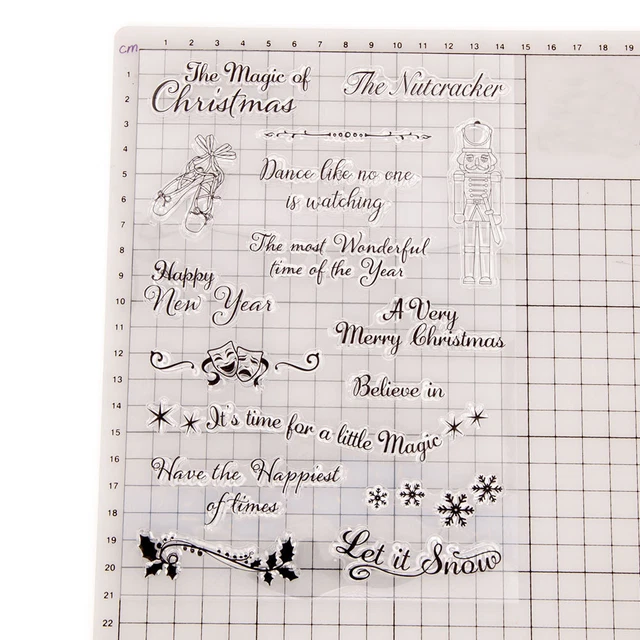 cm 1 2 3 4 5 6 7 8 9 10 11 12 13 14 15 16 17 18 19
1
2
3
4
5
6
7
8
9
10
11
12
13
14
15
16
17
18
19
20
21
22
The Magic of
Christmas
The Nutcracker
Dance like no one
is watching
The most Wonderful
time of the Year
Happy
New Year
A Very
Merry Christmas
Believe in
It's time for a little Magic
Have the Happiest
of times
Let it Snow